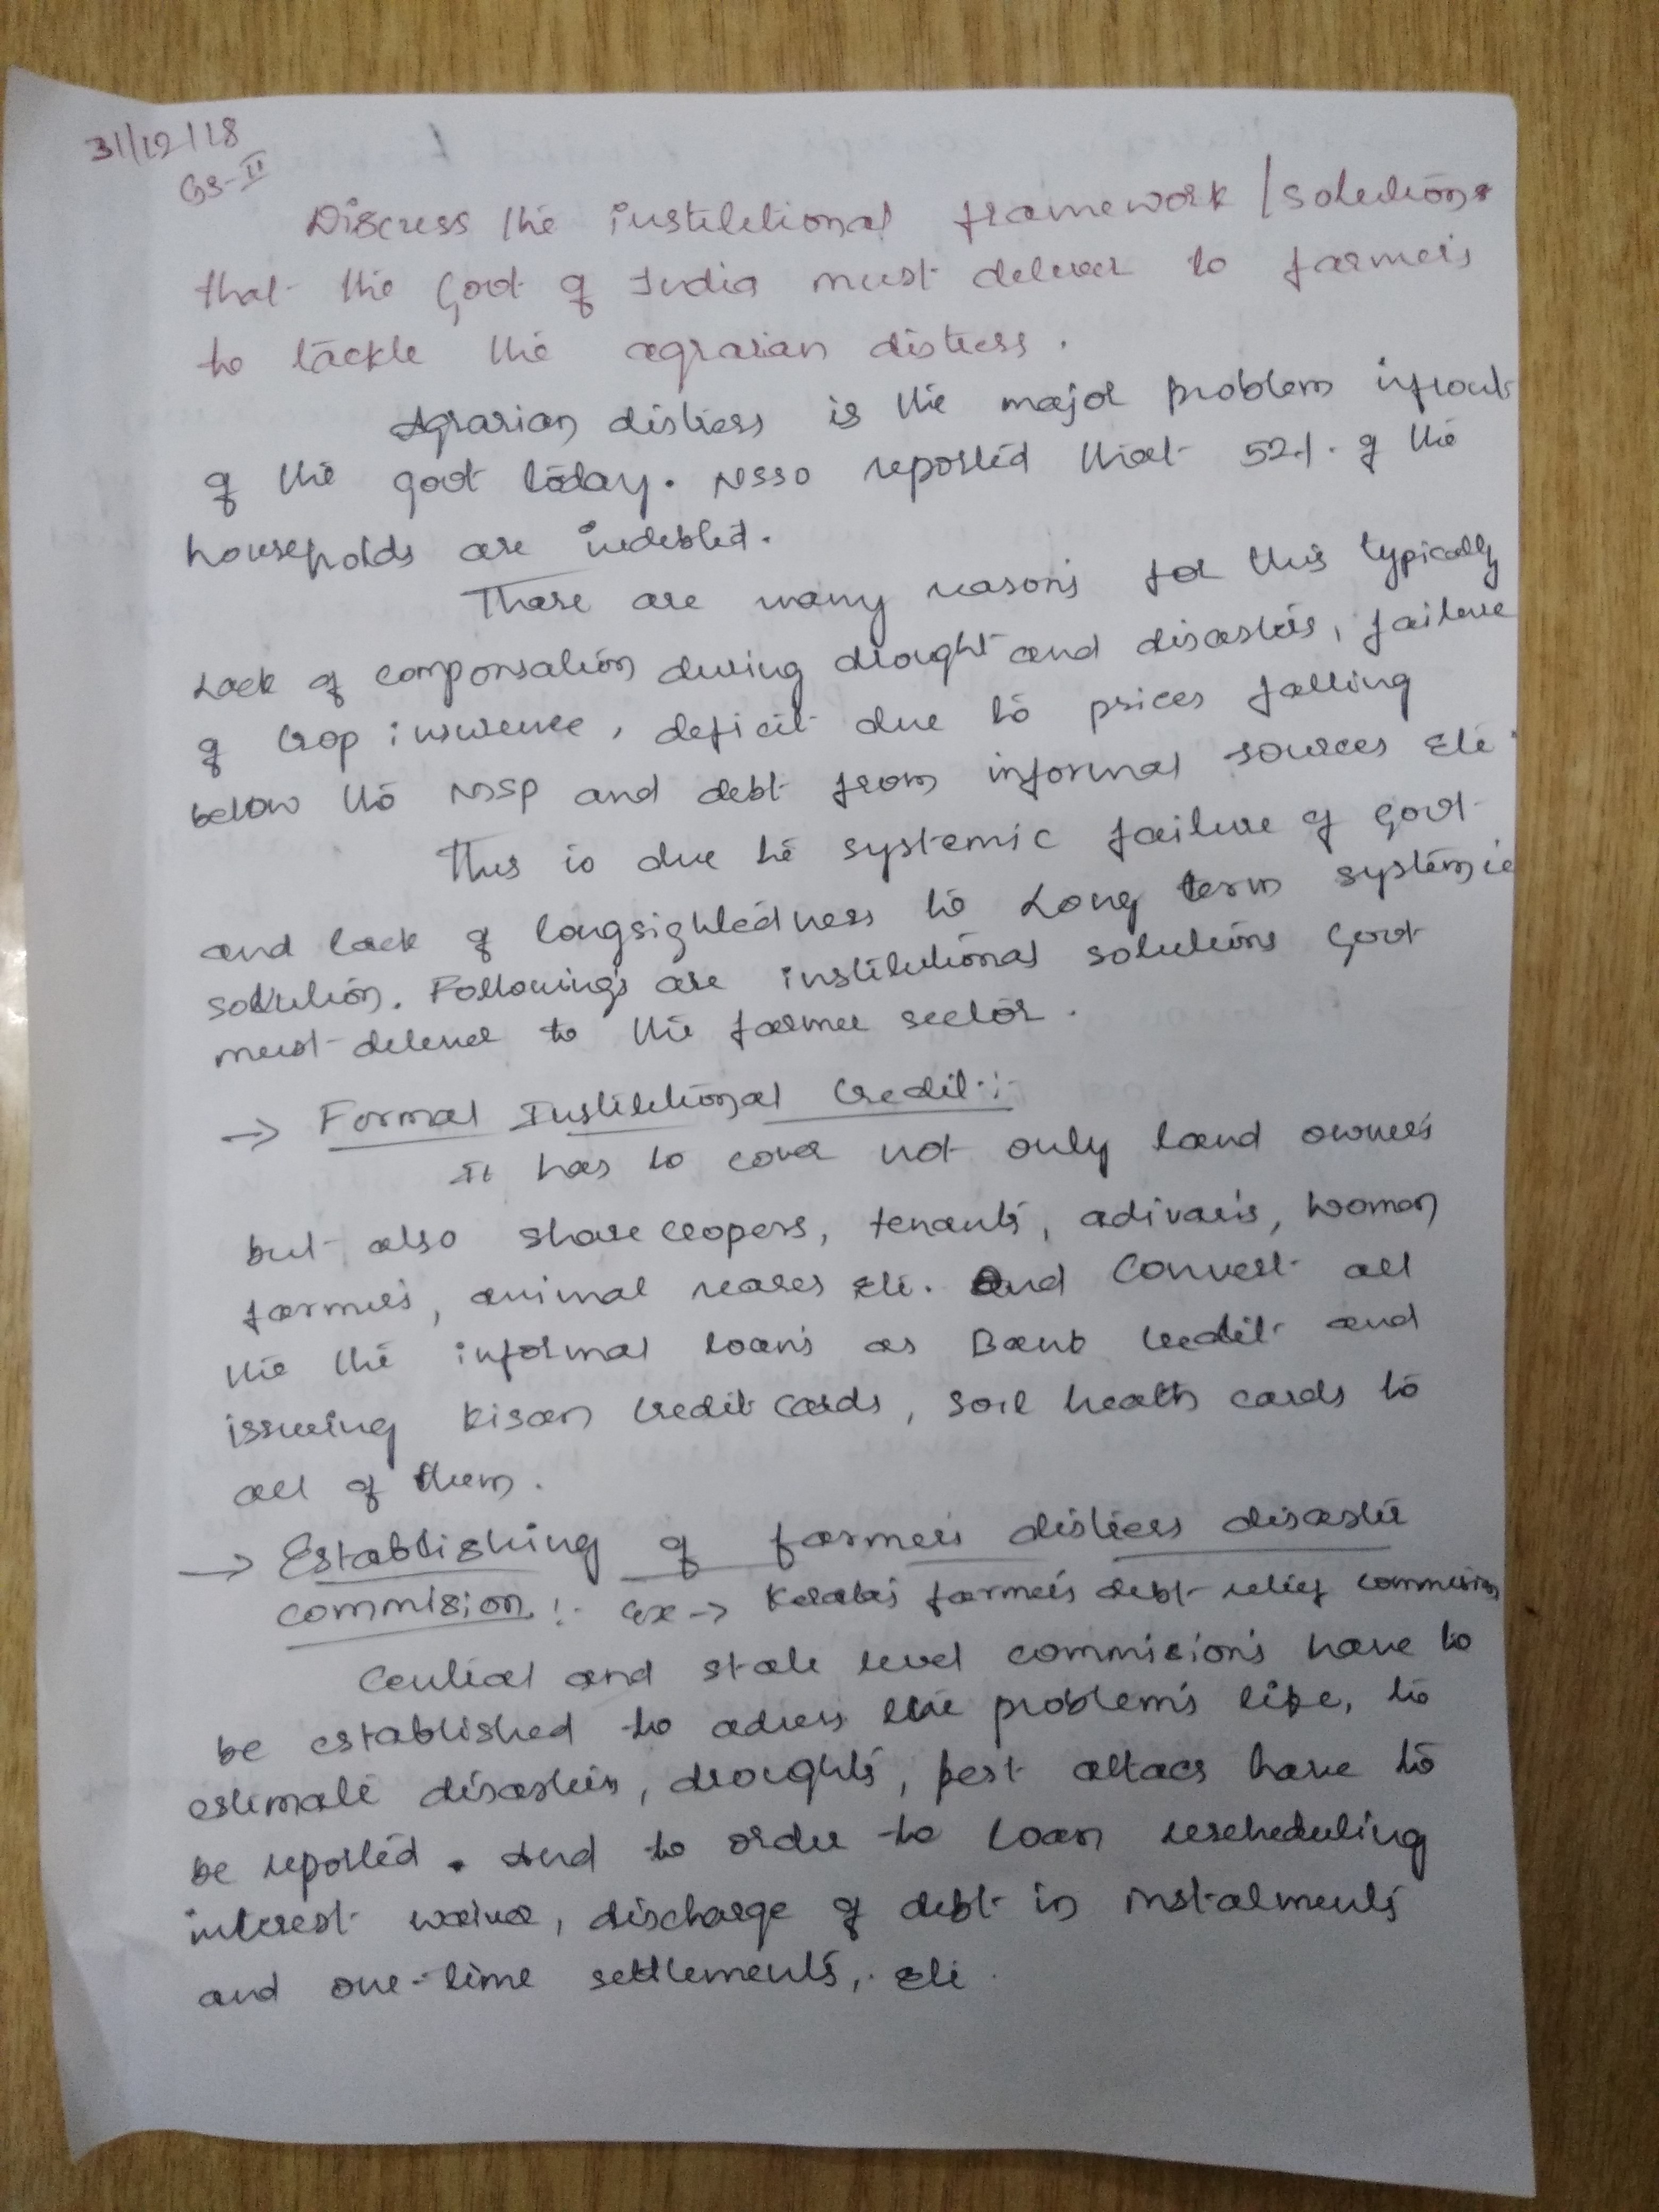 31/12/18
GS-II
Discuss the institutional framework/solutions
that the Govt of India must deliver to farmers
to tackle the agrarian distress.
Agrarian distress is the major problem infront
of the govt today. NSSO reported that 52% of the
households are indebted.
There are many reasons for this typically
Lack of componsation during drought and disasters, failure
of crop insurence, deficit due to prices falling
below the MSP and debt from informal sources etc.
This is due to systemic failure of govt
and lack of longsightedness to Long term systemic
solution. Followings are institutional solutions Govt
must deliver to the farmer sector.
→ Formal Institutional Credit:-
It has to cover not only land owners
but also share croopers, tenants, adivasis, women
farmers, animal reares etc. And convert all
the the informal loans as Bank credit and
issueing kisan credit cards, soil health cards to
all of them.
→ Establishing of farmers distress disaster
commision:- Ex → Keralas farmers debt relief commision
Central and state level commisions have to
be established to adress the problems like, to
estimate disasters, droughts, pest attacs have to
be reported. And to order to Loan rescheduling
interest waiver, discharge of debt in instalments
and one-time settlements, etc.